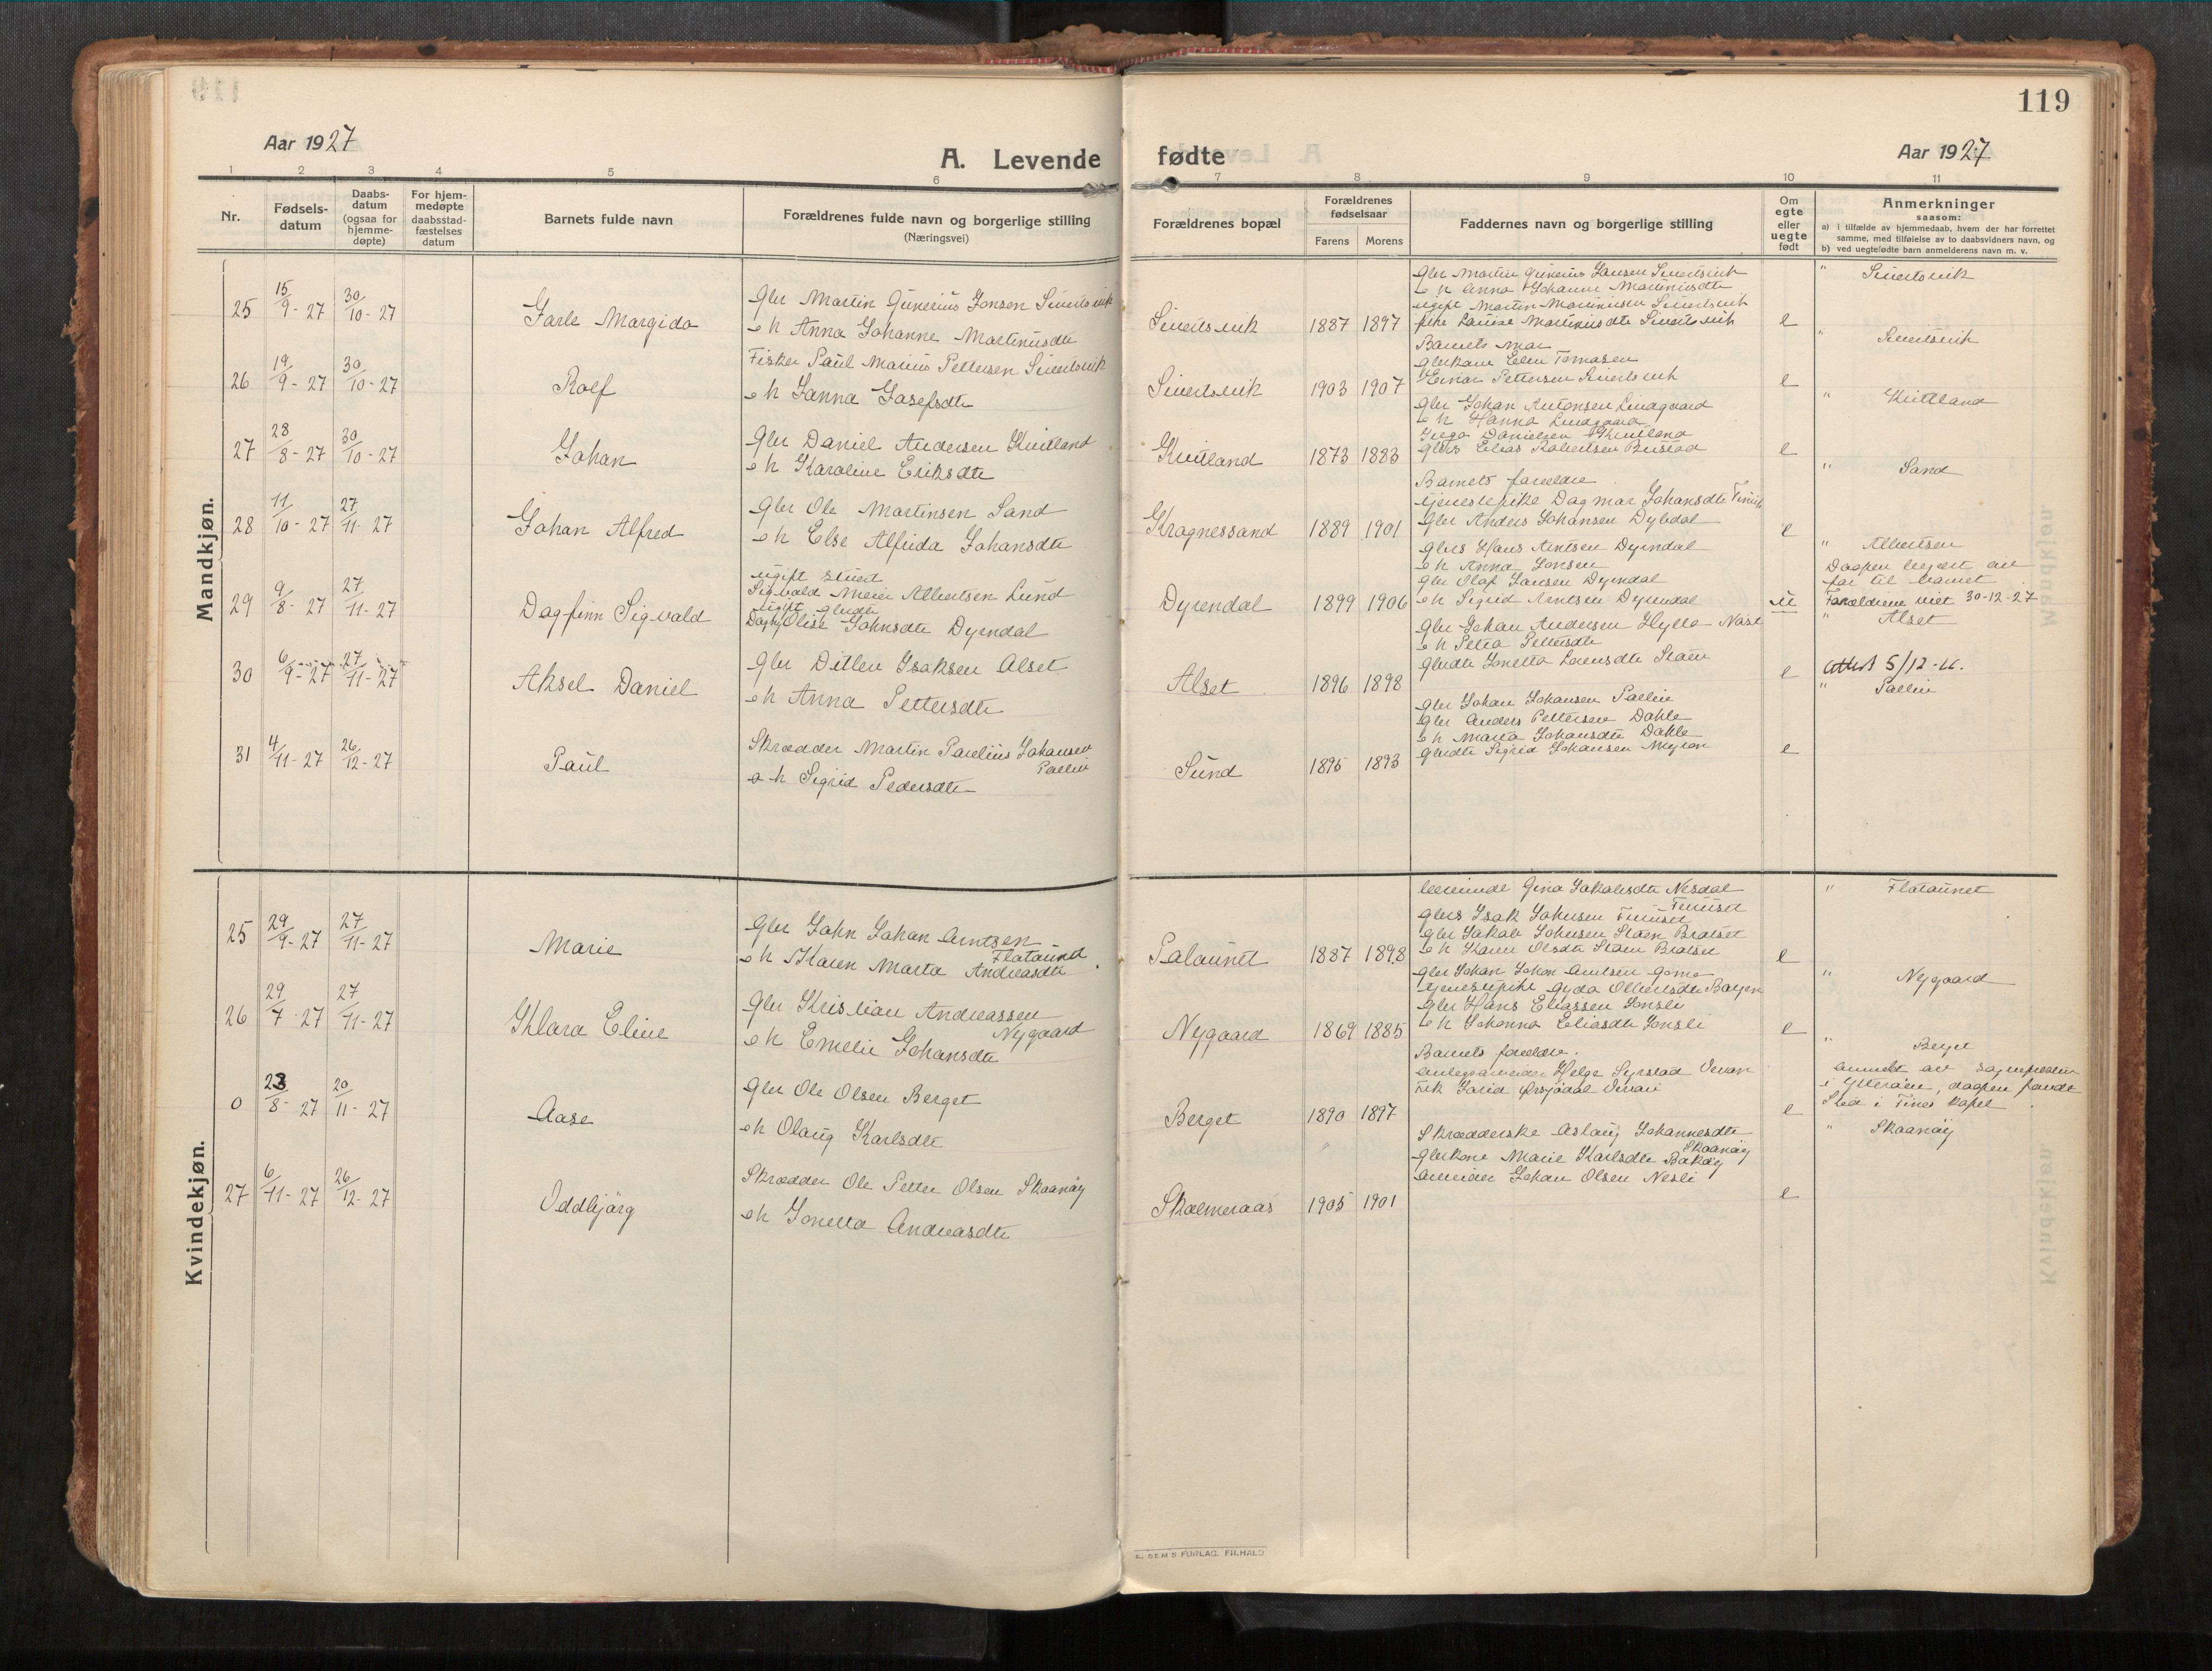 119
Aar 1927
A. Levende fødte
Aar 1927
1 2 3 4 5 6 7 8 9 10 11
Nr.
Fødsels-
datum
Daabs-
datum
(ogsaa for
hjemme-
døpte)
For hjem-
medøpte
daabsstad-
fæstelses
datum
Barnets fulde navn
Forældrenes fulde navn og borgerlige stilling
(Næringsvei)
Forældrenes bopæl
Forældrenes
fødselsaar
Farens Morens
Faddernes navn og borgerlige stilling
Om
egte
eller
uegte
født
Anmerkninger
saasom:
a) i tilfælde av hjemmedaab, hvem der har forrettet
samme, med tilføielse av to daabsvidners navn, og
b) ved uegtefødte barn anmelderens navn m. v.
Mandkjøn.
25 15/9-27 30/10-27 Jarle Margido
Gbr Martin Gunerius Jonsen Sivertsvik
o h Anna Johanne Martinusdtr
Sivertsvik 1887 1897
Gbr Martin Gunerius Jansen Sivertsvik
o h Anna Johanne Martinusdtr
ugift Martin Martinusen Sivertsvik
pike Laurise Martinusdtr Sivertsvik
e
" Sivertsvik
26 19/9-27 30/10-27 Rolf
Fisker Paul Marius Pettersen Sivertsvik
o h Janna Josefsdtr
Sivertsvik 1903 1907
Barnets mor
Gbrkone Elen Tomasen
Einar Pettersen Sivertsvik
e
" Sivertsvik
27 28/8-27 30/10-27 Johan
Gbr Daniel Andersen Kvitland
o h Karoline Eriksdtr
Kvitland 1873 1883
Gbr Johan Antonsen Lindgaard
o h Hanna Lindgaard
Danielsen Kvitland
Gbrs Elias Robertsen
e
" Kvitland
28 11/10-27 27/11-27 Johan Alfred
Gbr Ole Martinsen Sand
o h Else Alfrida Johansdtr
Kragnessand 1889 1901
Barnets forældre
tjenestepike Dagmar Johansdtr
Gbr Anders Johansen Dyrdal
e
" Sand
29 9/8-27 27/11-27 Dagfinn Sigvald
ugift
Sigvald Meier Albertsen Lund
ugift gbrdtr
Dagny Olise Johnsdtr Dyrndal
Dyrendal 1899 1906
Gbrs Hans Arntsen Dyrndal
o h Anna Jonsen
Gbr Olaf Jansen Dyrndal
o h Sigrid Arntsen Dyrndal
u
" Albertsen
Daapen begjært av
far til barnet
Forældrene viet 30-12-27
30 6/9-27 27/11-27 Aksel Daniel
Gbr Ditlev Isaksen Alset
o h Anna Pettersdtr
Alset 1896 1898
Gbr Johan Andersen Hylla
o h Petra Pettersdtr
gbrdtr Jonetta
e
" Alset
Attest 5/12-
31 4/11-27 26/12-27 Paul
Skrædder Martin Paulius Johansen
Pallin
o h Sigrid Pedersdtr
Sund 1895 1893
Gbr Johan Johansen Pallin
Gbr Anders Pettersen Dahle
o h Marta Johansdtr Dahle
gbrdtr Sigrid Johansen
e
" Pallin
Kvindekjøn.
25 29/9-27 27/11-27 Marie
Gbr John Johan Arntsen
Flataund
o h Karen Marta Andreasdtr
Palaunet 1887 1898
Gina Jakobsdtr Nesdal
Gbrs Isak Johnsen
Gbr Jakob Johnsen Staen Bratset
o h Karen Olsdtr Staen Bratset
e
" Flataunet
26 29/7-27 27/11-27 Klara Eline
Gbr Kristian Andreassen
Nygaard
o h Emelie Johansdtr
Nygaard 1869 1885
Gbr Johan Johan Arntsen
tjenestepike Gyda Olbertsdtr
Gbr Hans Eliassen Jonsli
o h Johanna Eliasdtr Jonsli
e
" Nygaard
0 23/8-27 20/11-27 Aase
Gbr Ole Olsen Berget
o h Olaug Karlsdtr
Berget 1890 1897
Barnets forældre.
Helge Syrstad
Frk
e
" Berget
Anmeldt av sognepresten
i Ytterøen, daapen fandt
sted i kapel
27 6/11-27 26/12-27 Oddbjørg
Skrædder Ole Petter Olsen Skaanøy
o h Jonetta Andreasdtr
Skolmeraas 1905 1901
Skrædderske Aslaug Johannesdtr
Skaanøy
Gbrkone Marie Karlsdtr Bakøy
Arbeider Johan Olsen Nesli
e
" Skaanøy
E. SEM'S FORLAG. FR.HALD